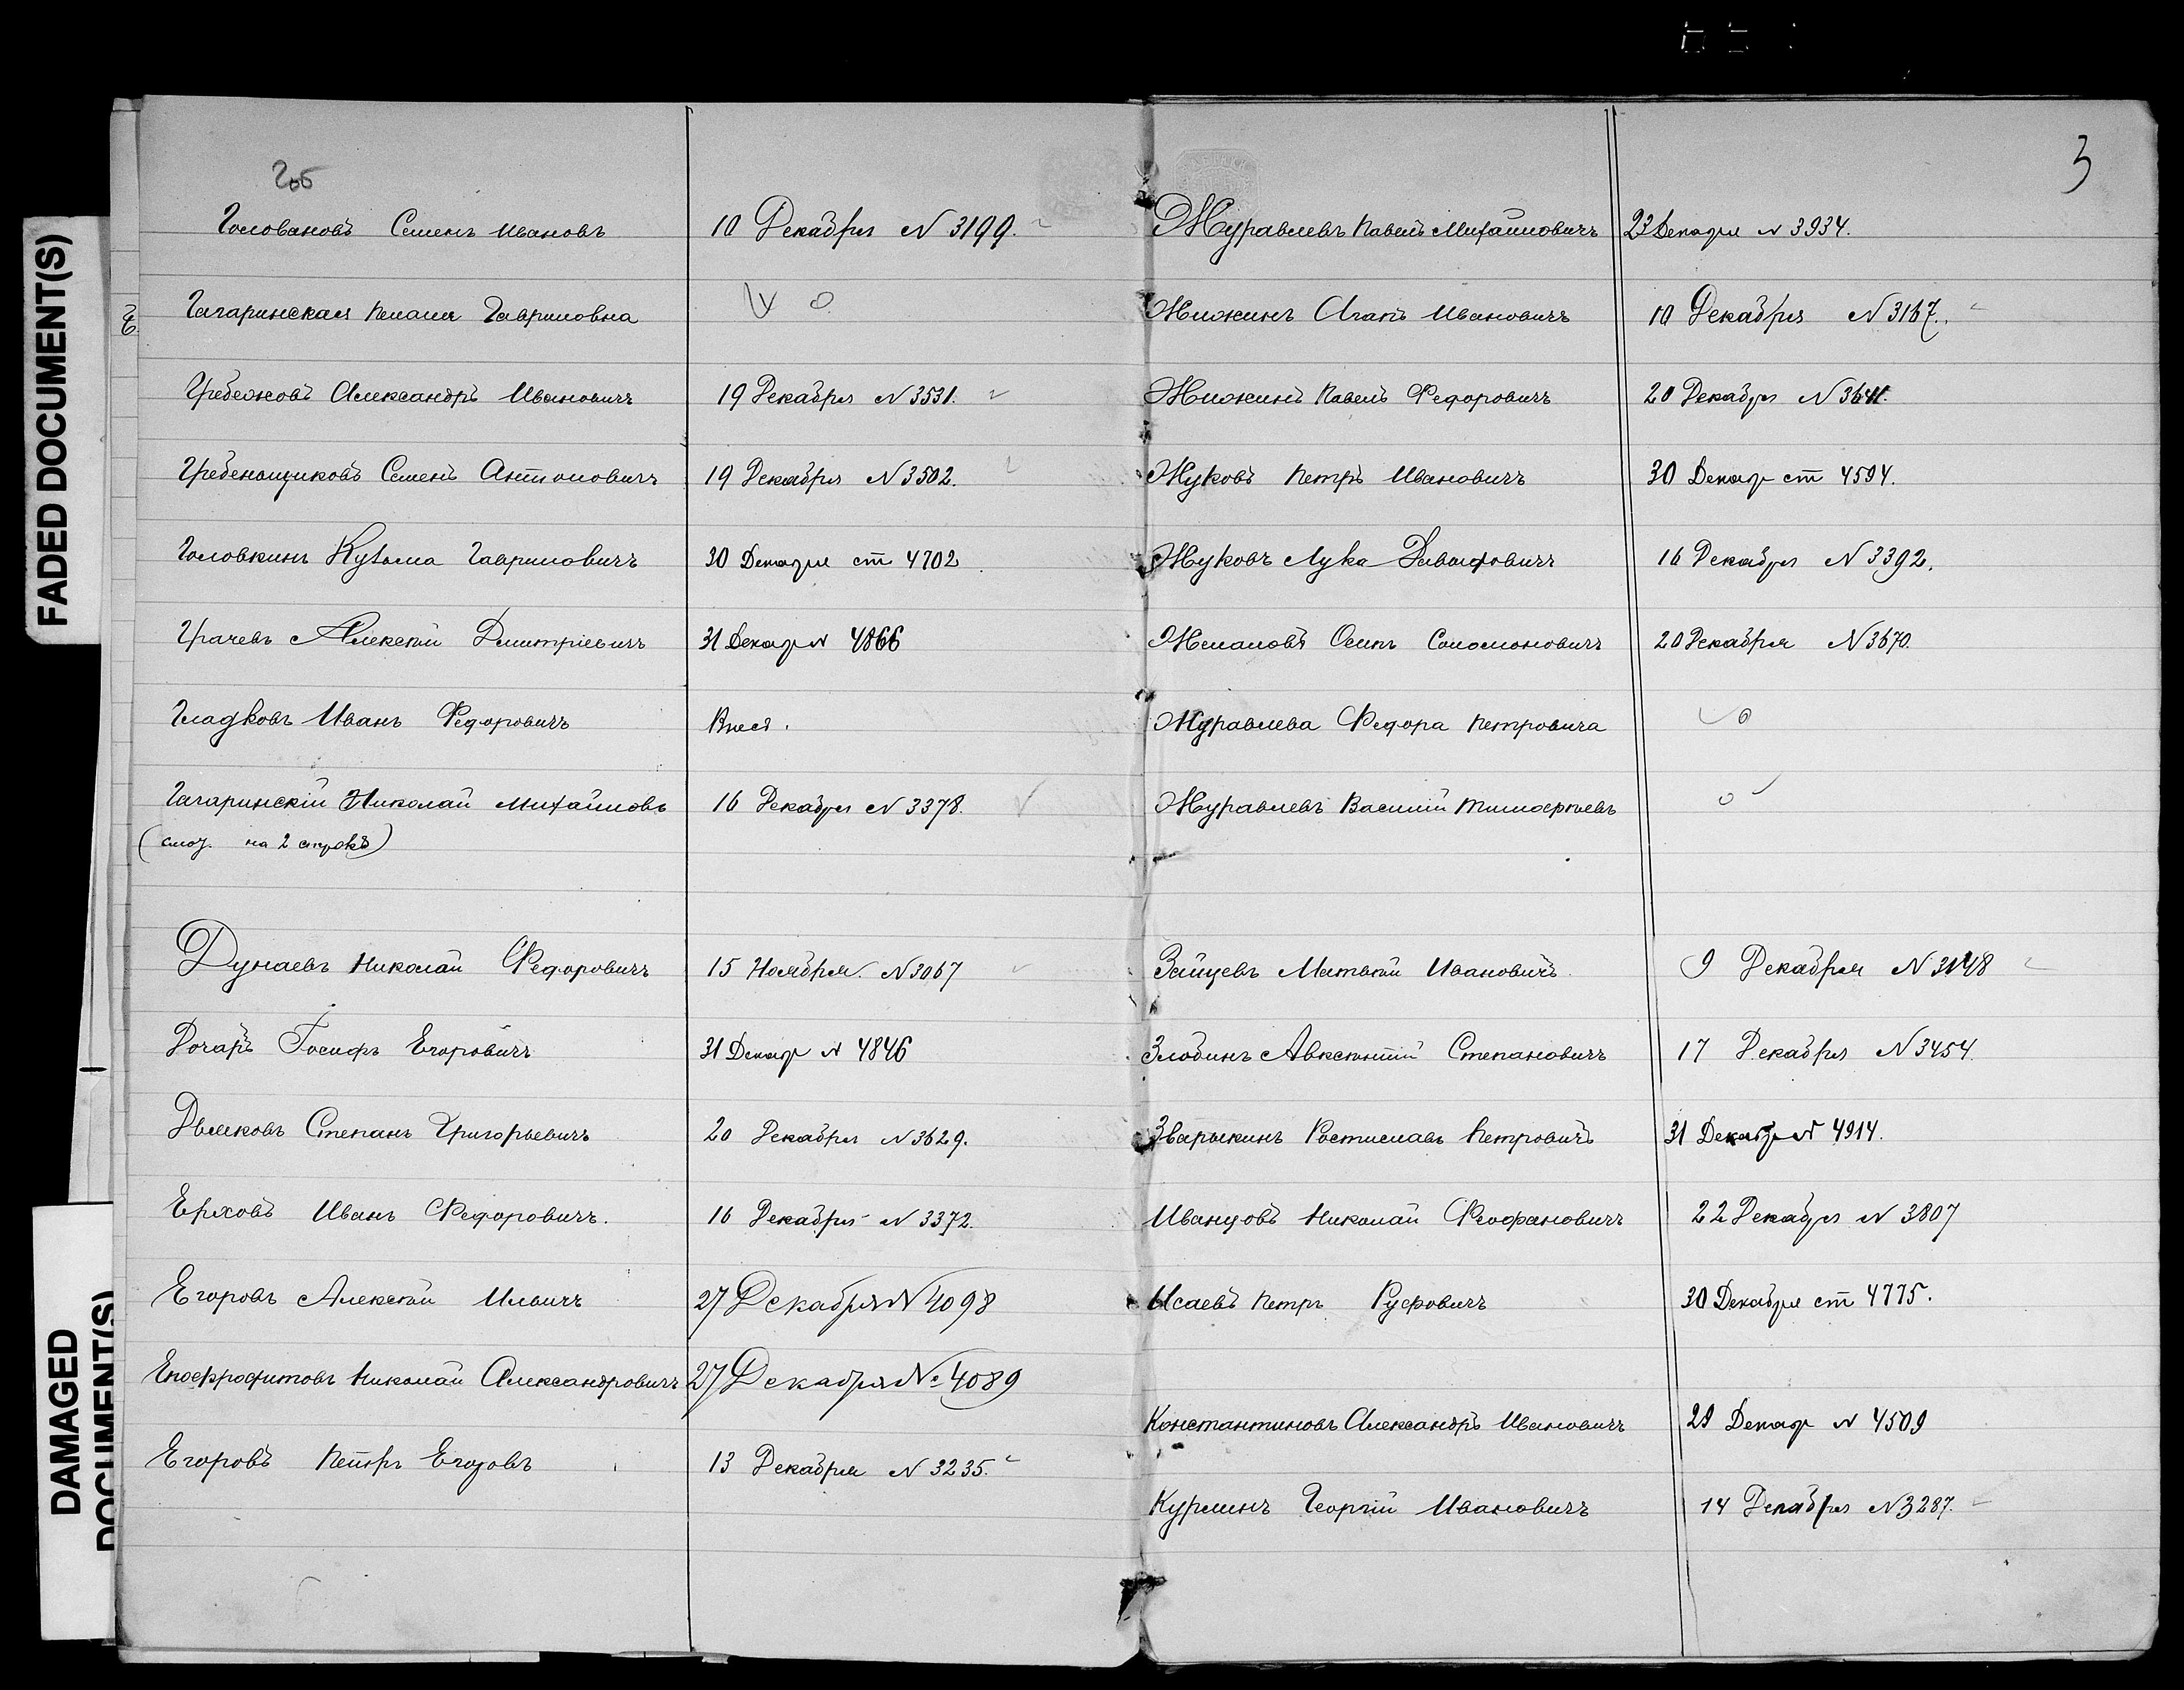 FADED DOCUMENT(S)
DAMAGED
DOCUMENT(S)
2об
Головановъ Семенъ Ивановъ 10 Декабря N 3199.
Гагаринская Пелагея Гавриловна
Гребежовъ Александръ Ивановичъ 19 Декабря N 3531.
Гребенщиковъ Семенъ Антоновичъ 19 Декабря N 3502.
Головкинъ Кузьма Гавриловичъ 30 Декабря ст 4702
Грачевъ Алексѣй Дмитріевичъ 31 Декабр N 4866
Гладковъ Иванъ Федоровичъ Внесъ.
Гагаринскій Николай Михайловъ 16 Декабря N 3378.
(смот. на 2 строкѣ)
Дунаевъ Николай Федоровичъ 15 Ноября N 3067
Дочаръ Іосифъ Егоровичъ 31 Декабр N 4846
Дьяковъ Степанъ Григорьевичъ 20 Декабря N 3629.
Ерховъ Иванъ Федоровичъ. 16 Декабря N 3372.
Егоровъ Алексѣй Ильичъ 27 Декабря N 4098
Епафродитовъ Николай Александровичъ 27 Декабря № 4089
Егоровъ Петръ Егоровъ 13 Декабря N 3235.
3
Журавлевъ Павелъ Михайловичъ 23 Декабря N 3934.
Жижинъ Агапъ Ивановичъ 10 Декабря N 3167.
Жижинъ Павелъ Федоровичъ 20 Декабря N
Жуковъ Петръ Ивановичъ 30 Декабр ст 4594.
Жуковъ Лука 16 Декабря N 3392.
Осипъ Соломоновичъ 20 Декабря N 3670.
Журавлева Федора Петровича
Журавлевъ Василій Тимофеевъ
Зайцевъ Матвѣй Ивановичъ. 9 Декабря N 3148
Злобинъ Авксентій Степановичъ 17 Декабря N 3454.
Зварыкинъ Ростиславъ Петровичъ 31 Декабр N 4914.
Иванцовъ Николай Феофановичъ 22 Декабря N 3807
Исаевъ Петръ Руфовичъ 30 Декабря ст 4775.
Константиновъ Александръ Ивановичъ 29 Декабр N 4509
Курминъ Георгій Ивановичъ 14 Декабря N 3287.